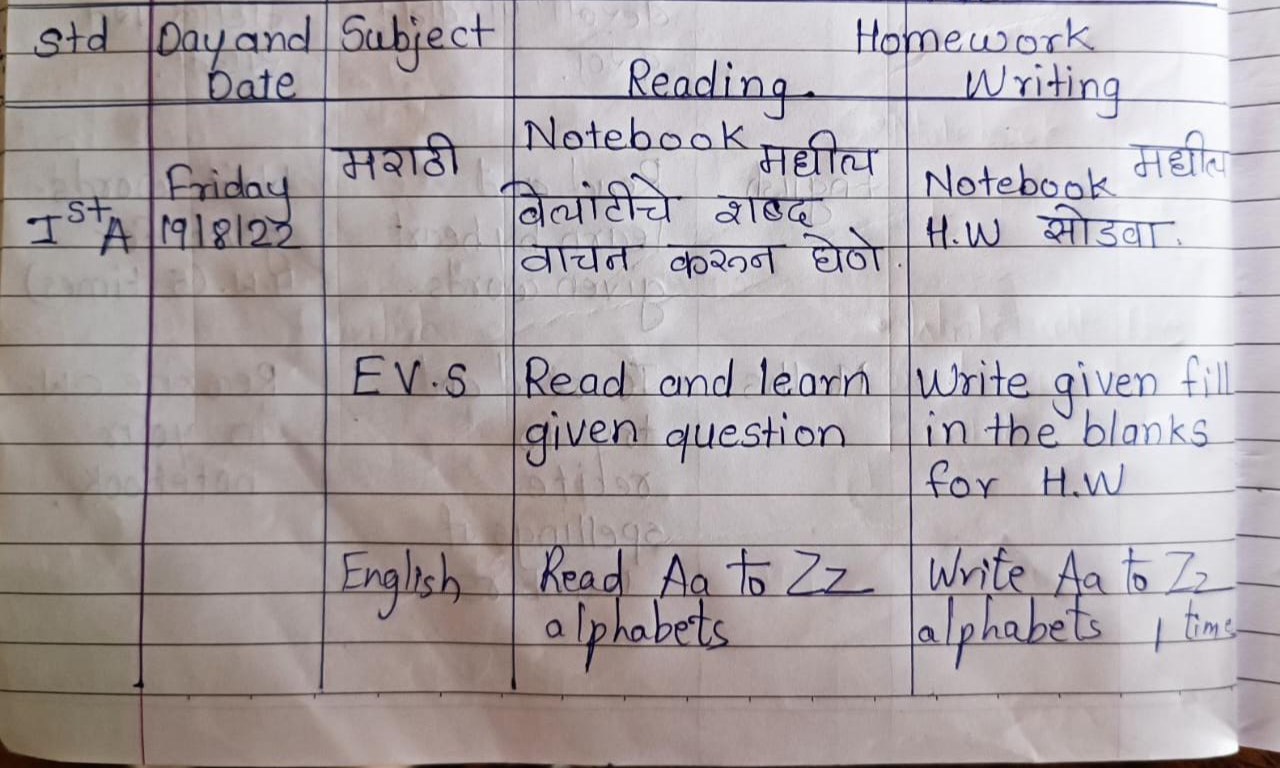 Std Day and Subject Homework
Date Reading. Writing
मराठी Notebook मधील मधील
Friday वेलांटीचे शब्द Notebook
Ist A 19/8/22 वाचन करून घेणे. H.W सोडवा.
E V.S Read and learn Write given fill
given question in the blanks
for H.W
English Read Aa to Zz Write Aa to Zz
alphabets alphabets 1 time